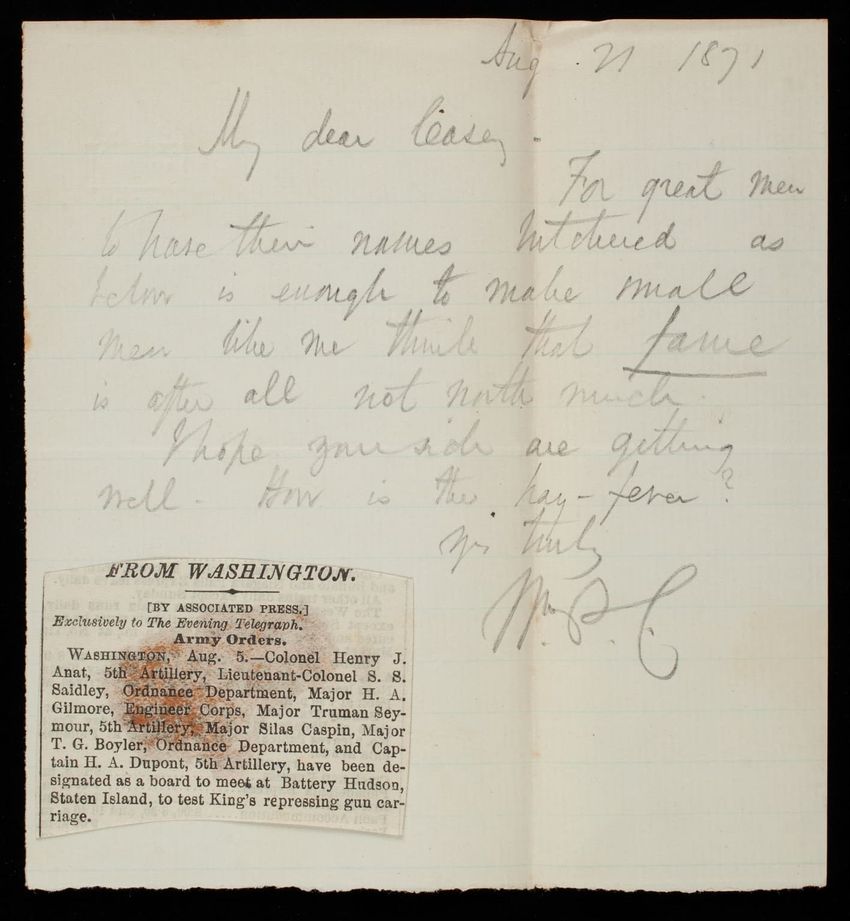 Aug 21 1871
My dear Casey -
For great men
to have their names butchered as
below is enough to make small
men like me think that fame
is after all not worth much.
I hope your sick are getting
well - How is the hay-fever?
Yrs truly
Wm. P. C.
FROM WASHINGTON.
[BY ASSOCIATED PRESS.]
Exclusively to The Evening Telegraph.
Army Orders.
WASHINGTON, Aug. 5.—Colonel Henry J.
Anat, 5th Artillery, Lieutenant-Colonel S. S.
Saidley, Ordnance Department, Major H. A.
Gilmore, Engineer Corps, Major Truman Sey-
mour, 5th Artillery, Major Silas Caspin, Major
T. G. Boyler, Ordnance Department, and Cap-
tain H. A. Dupont, 5th Artillery, have been de-
signated as a board to meet at Battery Hudson,
Staten Island, to test King's repressing gun car-
riage.